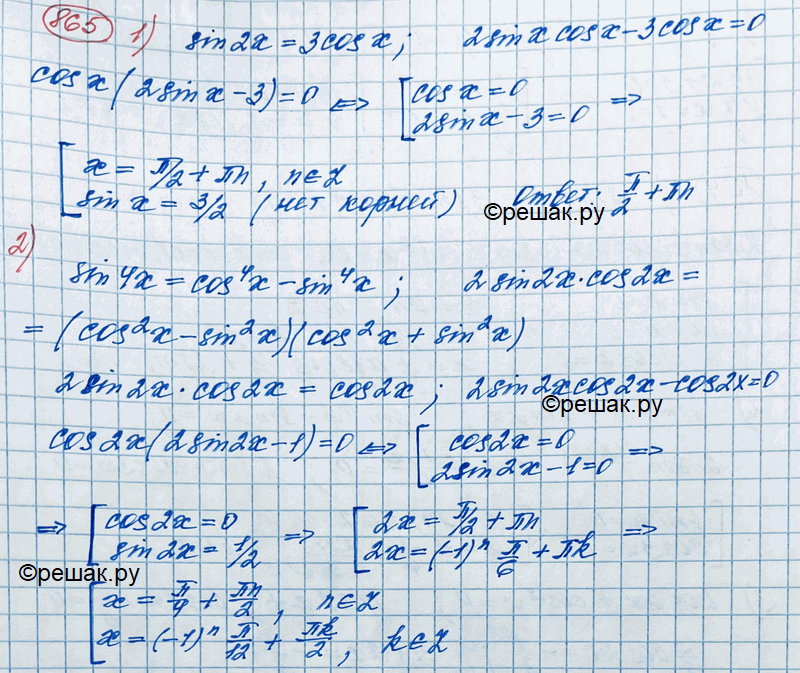 865 1) sin2x = 3cosx; 2sinx cosx - 3cosx = 0
cosx(2sinx - 3) = 0 <=> [cosx = 0
2sinx - 3 = 0 =>
[x = π/2 + πn, n∈Z
sin x = 3/2 (нет корней) Ответ: π/2 + πn
©решак.ру
2)
sin4x = cos⁴x - sin⁴x; 2sin2x·cos2x =
= (cos²x - sin²x)(cos²x + sin²x)
2sin2x·cos2x = cos2x; 2sin2xcos2x - cos2x = 0
©решак.ру
cos2x(2sin2x - 1) = 0 <=> [cos2x = 0
2sin2x - 1 = 0 =>
=> [cos2x = 0
sin2x = 1/2 => [2x = π/2 + πn
2x = (-1)ⁿ π/6 + πk =>
©решак.ру
[x = π/4 + πn/2, n∈Z
x = (-1)ⁿ π/12 + πk/2, k∈Z